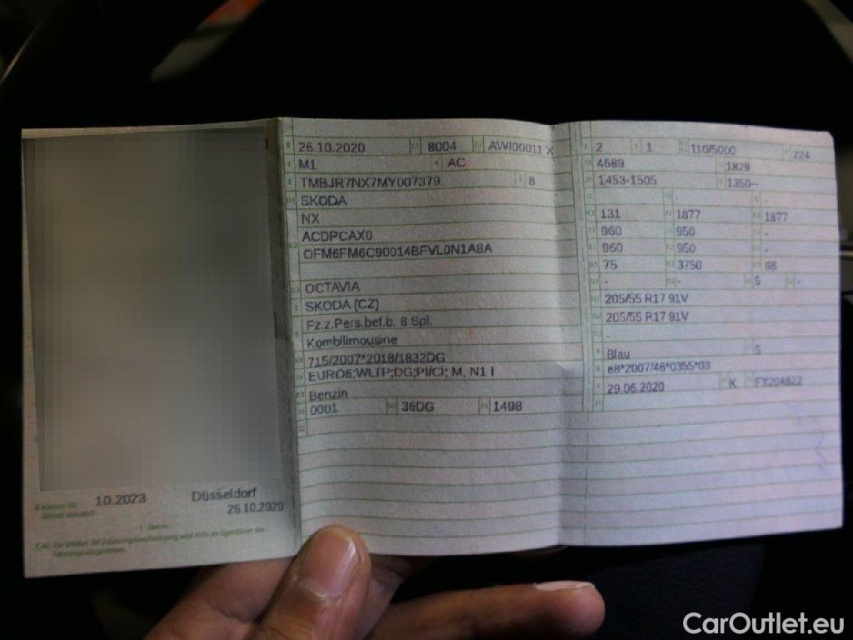 26.10.2020 8004 AWI00011 X
M1 AC
TMBJR7NX7MY007379 8
SKODA
NX
ACDPCAX0
OFM6FM6C90014BFVL0N1A8A
OCTAVIA
SKODA (CZ)
Fz.z.Pers.bef.b. 8 Spl.
Kombilimousine
715/2007*2018/1832DG
EURO6;WLTP;DG;PI/CI; M, N1 I
Benzin
0001 36DG 1498
10.2023 Düsseldorf
26.10.2020
2 1 110/5000 224
4689 1829
1453-1505 1350--
131 1877 1877
960 950 -
960 950 -
75 3750 68
- - 5 -
205/55 R17 91V
205/55 R17 91V
-
Blau 5
e8*2007/46*0355*03
29.06.2020 K FX204822
CarOutlet.eu